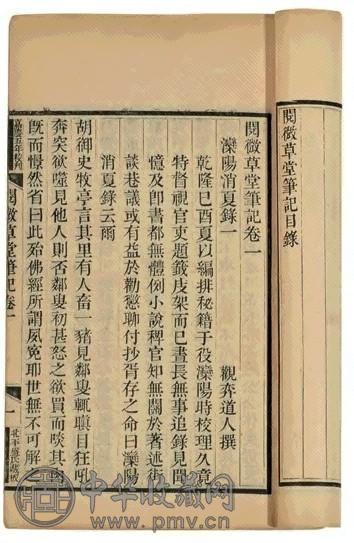 閱微草堂筆記目錄
閱微草堂筆記卷一
灤陽消夏錄一 觀弈道人撰
乾隆己酉夏以編排秘籍于役灤陽時校理久竟
特督視官吏題籤庋架而已晝長無事追錄見聞
憶及即書都無體例小說稗官知無關於著述街
談巷議或有益於勸懲聊付抄胥存之命曰灤陽
消夏錄云爾
胡御史牧亭言其里有人畜一豬見鄰叟輒瞋目狂吼
奔突欲噬見他人則否鄰叟初甚怒之欲買而啖其肉
既而憬然省曰此殆佛經所謂夙冤耶世無不可解
閱微草堂筆記卷一
一
中华收藏网
www.pmv.cn